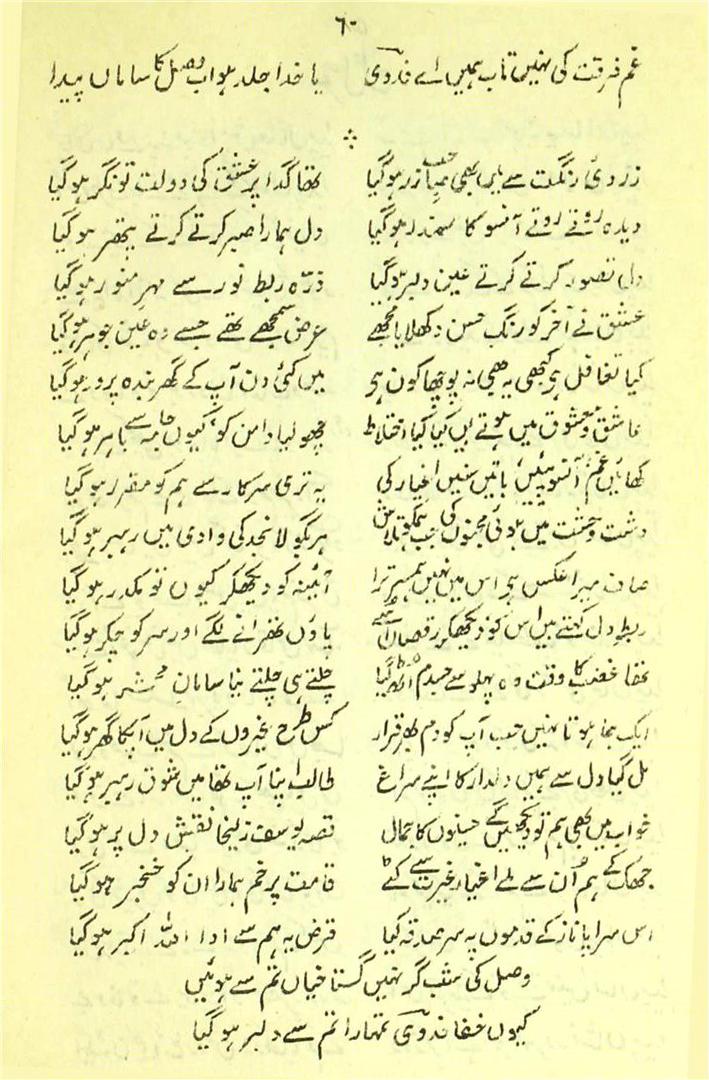 ٦٠
غم فرقت کی نہیں تاب ہمیں اے فدوی یا خدا جلد ہو اب وصل کا ساماں پیدا
زردیٔ رنگت سے یاں بھی جب میاں زر ہو گیا تھا گدا پر عشق کی دولت تونگر ہو گیا
دیدہ روتے روتے آنسو کا سمندر ہو گیا دل ہمارا صبر کرتے کرتے پتھر ہو گیا
دل تصور کرتے کرتے عین دلبر ہو گیا ذرّہ ربط نور سے مہر منور ہو گیا
عشق نے آخر کو رنگ حسن دکھلایا مجھے عرض سمجھے تھے جسے وہ عین جوہر ہو گیا
کیا تغافل ہے کبھی یہ بھی نہ پوچھا کون ہے میں کئی دن آپ کے گھر بندہ پرور ہو گیا
عاشق و معشوق میں ہوتے ہیں کیا کیا اختلاط چھو لیا دامن کو کیوں جامہ سے باہر ہو گیا
کھائیں غم آنسو پئیں باتیں سنیں اغیار کی یہ تری سرکار سے ہم کو مقرر ہو گیا
دشت وحشت میں ہوئی مجنوں کی جب ہمکو تلاش ہر بگولا نجد کی وادی میں رہبر ہو گیا
صاف میرا عکس ہے اس میں نہیں ہمسر ترا آئینہ کو دیکھکر کیوں تو مکدر ہو گیا
ربط دل کہتے ہیں اس کو دیکھکر رقصاں اسے پاؤں تھرانے لگے اور سر کو چکر ہو گیا
تھا غضب کا وقت وہ پہلو سے جس دم اٹھ گیا چلتے ہی چلتے بپا سامان محشر ہو گیا
ایک جا ہوتا نہیں جب آپ کو دم بھر قرار کس طرح غیروں کے دل میں آپکا گھر ہو گیا
مل گیا دل سے ہمیں دلدار کا اپنے سراغ طالب اپنا آپ تھا میں شوق رہبر ہو گیا
خواب میں بھی ہم تو دیکھیں گے حسینوں کا جمال قصہ یوسف زلیخا نقش دل پر ہو گیا
جھک کے ہم اُن سے ملے اغیار غیرت سے کٹے قامت پر خم ہمارا ان کو خنجر ہو گیا
اس سراپا ناز کے قدموں پہ سر صدقہ کیا قرض یہ ہم سے ادا اللہ اکبر ہو گیا
وصل کی شب گر نہیں گستاخیاں تم سے ہوئیں
کیوں خفا فدوی تمہارا تم سے دلبر ہو گیا